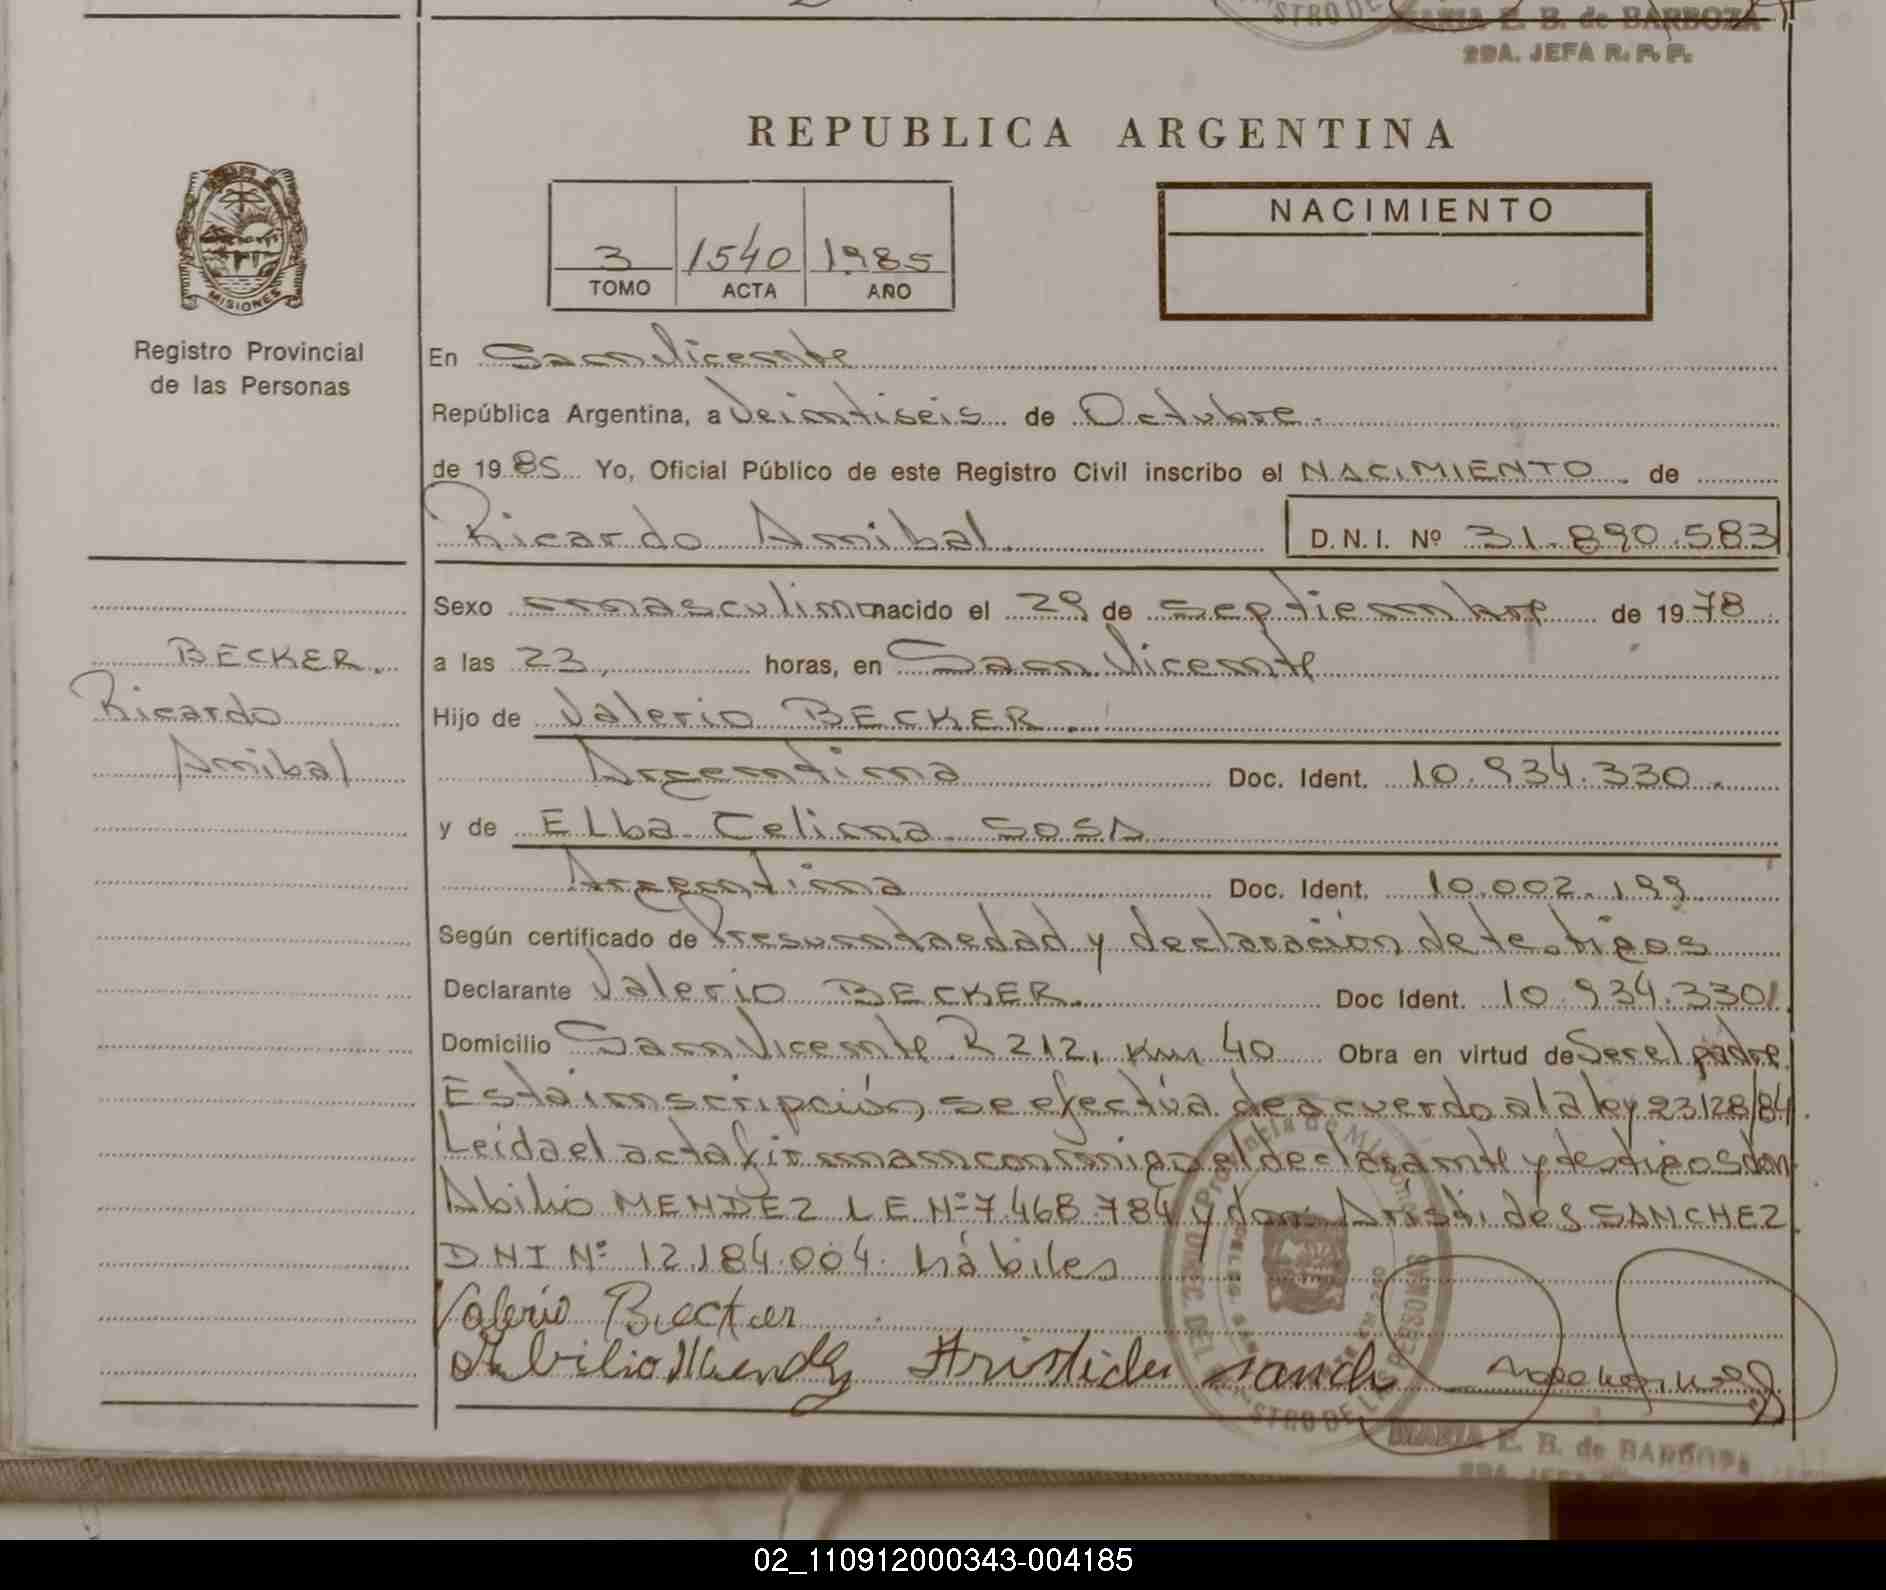 MARIA E. B. de BARBOZA
2DA. JEFA R. P. P.
STRO DE
REPUBLICA ARGENTINA
MISIONES
Registro Provincial
de las Personas
3 1540 1985
TOMO ACTA AÑO
NACIMIENTO
En San Vicente
República Argentina, a Veintiseis de Octubre.
de 1985 Yo, Oficial Público de este Registro Civil inscribo el NACIMIENTO de
Ricardo Anibal D.N.I. Nº 31.890.583
Sexo masculino nacido el 29 de septiembre de 1978
BECKER.
Ricardo
Anibal
a las 23, horas, en San Vicente
Hijo de Valerio BECKER.
Argentina Doc. Ident. 10.934.330.
y de Elba Celina SOSA
Argentina Doc. Ident. 10.002.199
Según certificado de Presunta edad y declaración de testigos
Declarante Valerio BECKER. Doc Ident. 10.934.330/.
Domicilio San Vicente R 212, Km 40 Obra en virtud de Ser el padre.
Esta inscripción se efectúa de acuerdo a la ley 23128/84.
Leída el acta firman conmigo el declarante y testigos don
Abilio MENDEZ L E Nº 7.468.784 y don Aristides SANCHEZ.
DNI Nº 12.184.004. hábiles
Valerio Becker
Abilio Mendez Aristides Sanch
MARIA E. B. de BARBOZA
02_110912000343-004185